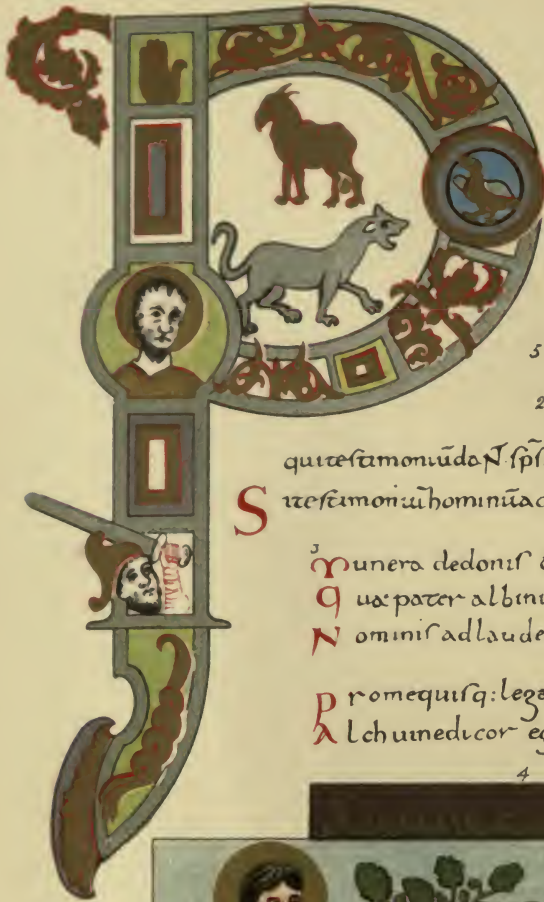 P
5
2
qui testimoniū daN. sp̄s
Si testimoniū hominū ac
3
Munera de donis
Quæ pater albinu
Nominis ad laude
Pro me quisq: lega
Alchuine dicor eg
4